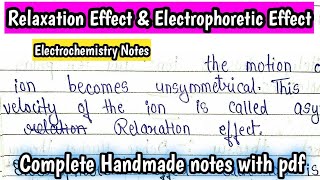 Relaxation Effect & Electrophoretic Effect
Electrochemistry Notes
the motion o
ion becomes unsymmetrical. This
velocity of the ion is called asy
relation Relaxation effect.
Complete Handmade notes with pdf